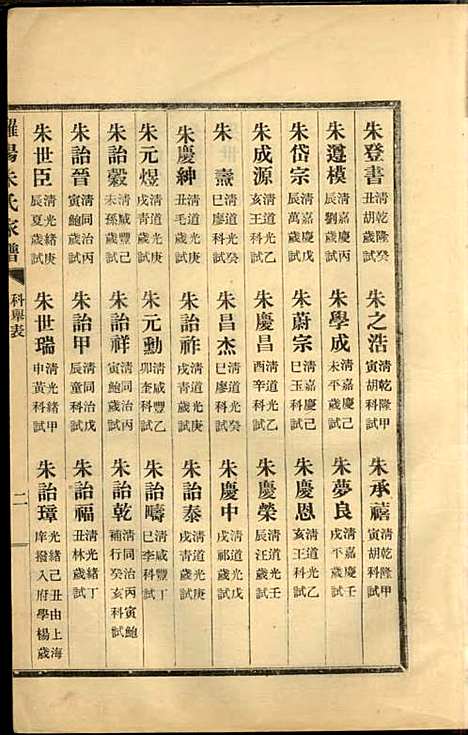 朱登書 清乾隆癸丑胡歲試
朱之浩 清乾隆甲寅胡科試
朱承禧 清乾隆甲寅胡科試
朱遵模 清嘉慶丙辰劉歲試
朱學成 清嘉慶己未平歲試
朱夢良 清嘉慶戊戌平歲試
朱岱宗 清嘉慶戊辰萬歲試
朱蔚宗 清嘉慶己巳玉科試
朱慶恩 清道光乙亥王科試
朱成源 清道光乙亥王科試
朱慶昌 清道光乙酉辛科試
朱慶榮 清道光壬辰汪歲試
朱燾 清道光癸巳廖科試
朱昌杰 清道光癸巳廖科試
朱慶中 清道光戊戌祁歲試
朱慶紳 清道光庚丑毛歲試
朱詒祚 清道光庚戌青歲試
朱詒泰 清道光庚戌青歲試
朱元煜 清道光庚戌青歲試
朱元勳 清咸豐乙卯奎科試
朱詒疇 清咸豐丁巳李科試
朱詒穀 清咸豐己未孫歲試
朱詒祥 清同治丙寅鮑歲試
朱詒乾 清同治丙寅鮑補行癸亥科試
朱詒晉 清同治丙寅鮑歲試
朱詒甲 清同治戊辰童科試
朱詒福 清光緒丁丑林歲試
朱世臣 清光緒庚辰夏歲試
朱世瑞 清光緒甲申黃科試
朱詒璋 光緒己丑由上海庠撥入府學楊歲
羅陽朱氏家譜
科舉表
二